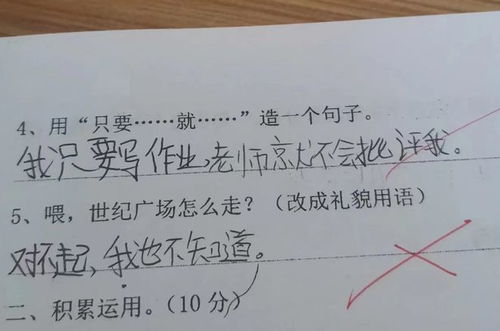 4、用“只要……就……”造一个句子。
我只要写作业，老师京尤不会批评我。
5、喂，世纪广场怎么走？（改成礼貌用语）
对不起，我也不知道。
二、积累运用。（10分）